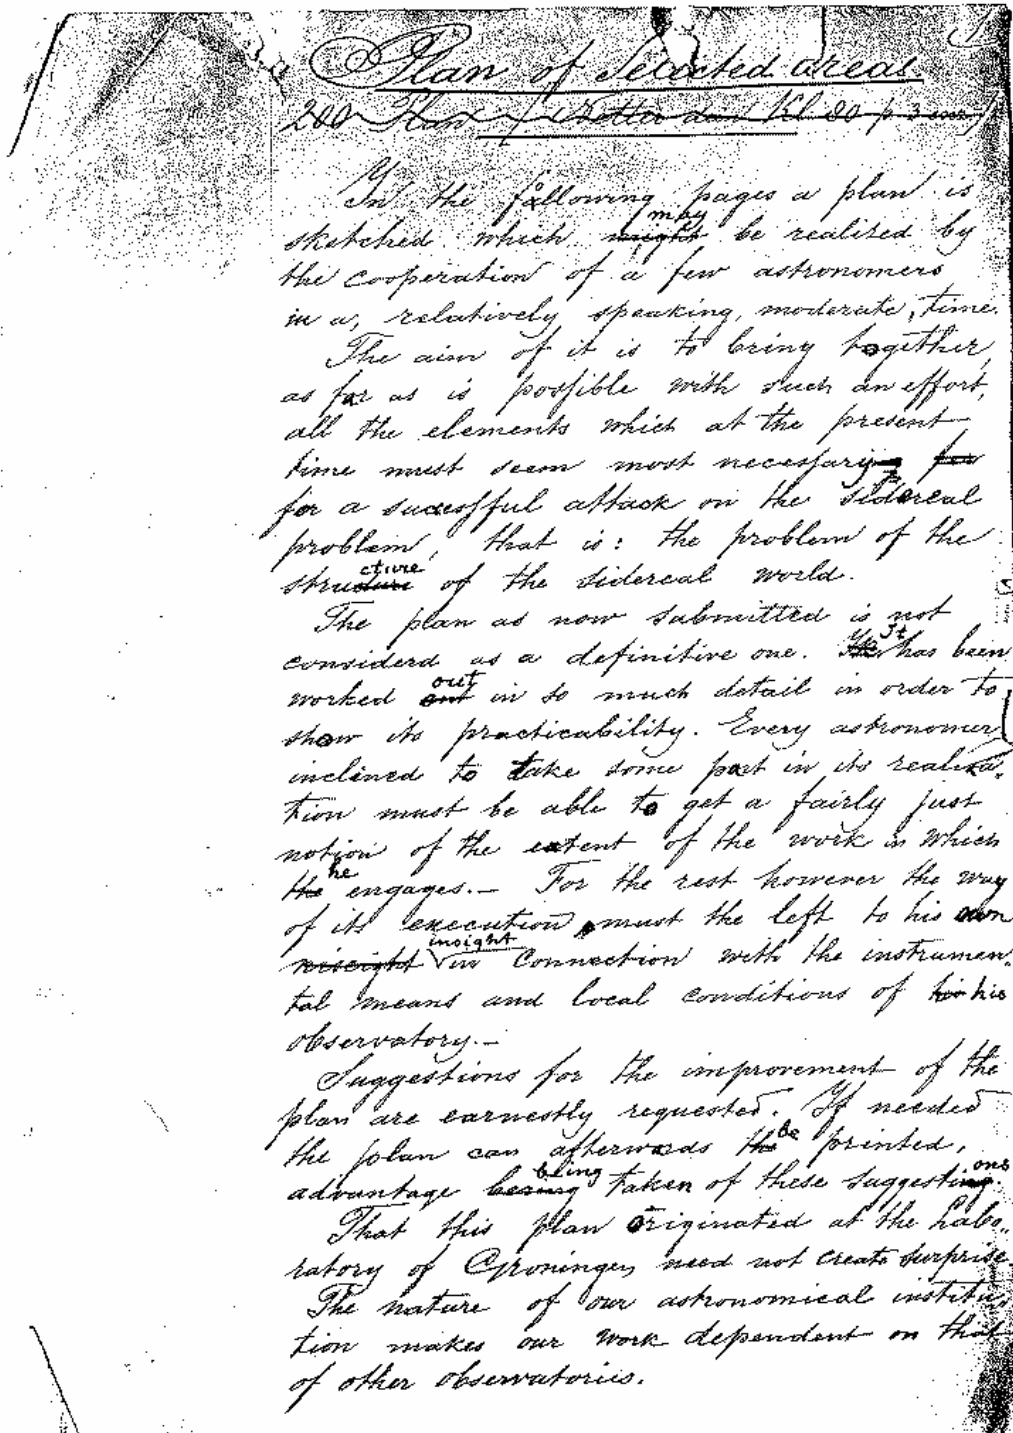 1
Plan of Selected areas
200 Plan
In the following pages a plan is
sketched which might may be realised by
the cooperation of a few astronomers
in a, relatively speaking, moderate, time.
The aim of it is to bring together,
as far as is possible with such an effort,
all the elements which at the present
time must seem most necessary for
for a successful attack on the sidereal
problem, that is: the problem of the
structure of the sidereal world.
The plan as now submitted is not
considerd as a definitive one. It has been
worked out in so much detail in order to
show its practicability. Every astronomer
inclined to take some part in its realiza-
tion must be able to get a fairly just
notion of the extent of the work in which
the he engages.— For the rest however the way
of its execution must the left to his own
insight in connection with the instrumen-
tal means and local conditions of his his
observatory.—
Suggestions for the improvement of the
plan are earnestly requested. If needed
the plan can afterwards the be printed,
advantage being taken of these suggestions.
That this plan originated at the Labo-
ratory of Groningen need not create surprise.
The nature of our astronomical institu-
tion makes our work dependent on that
of other observatories.